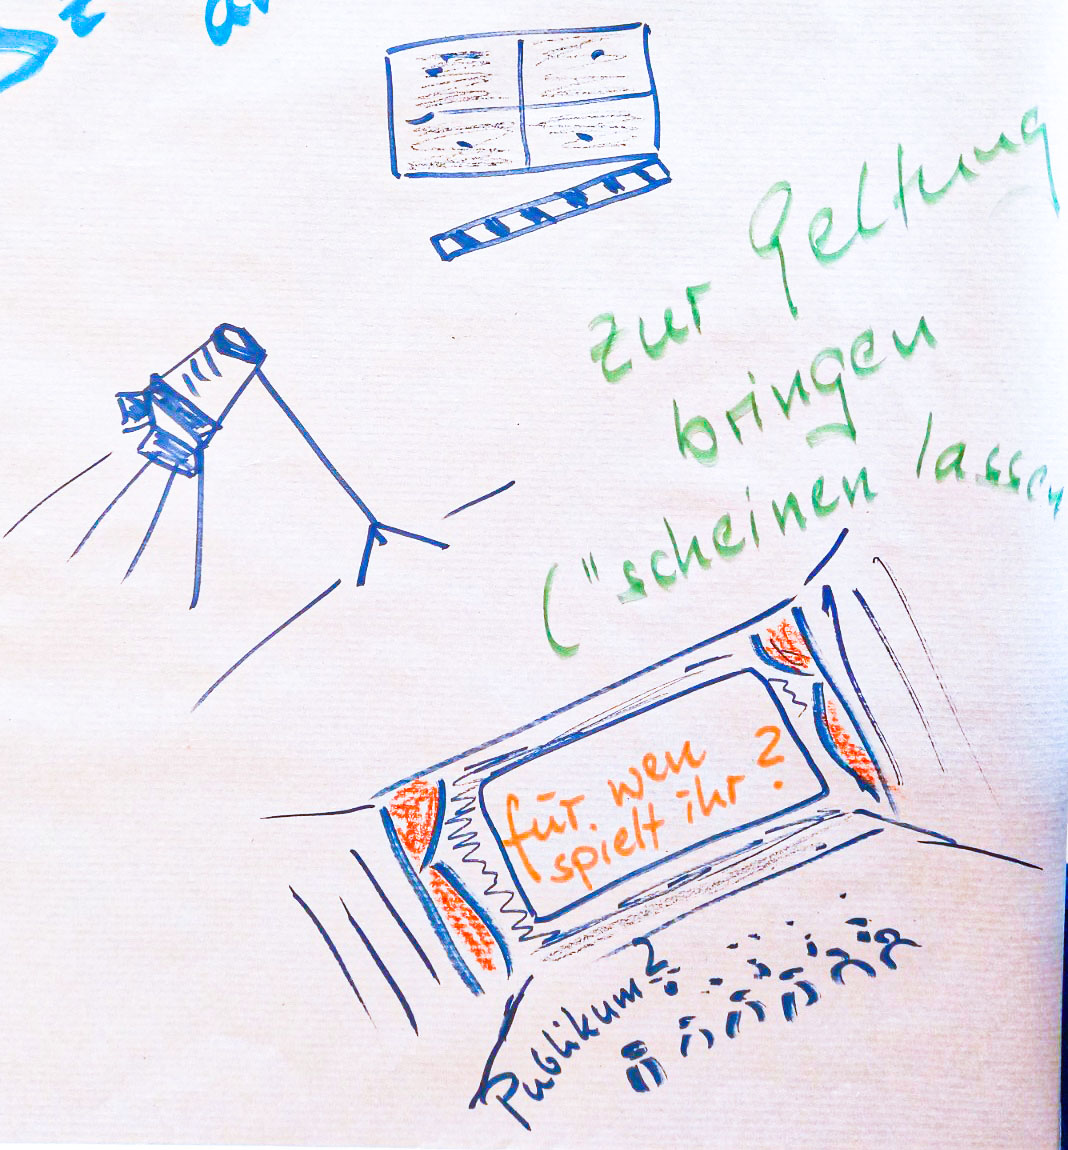 zur Geltung
bringen
("scheinen lassen
für wen
spielt ihr?
Publikum?